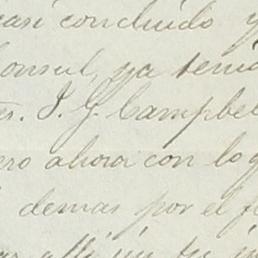 casi concluido y
onsul, ya tenia
es. J. G. Campbel
ero ahora con lo q
demas por el f